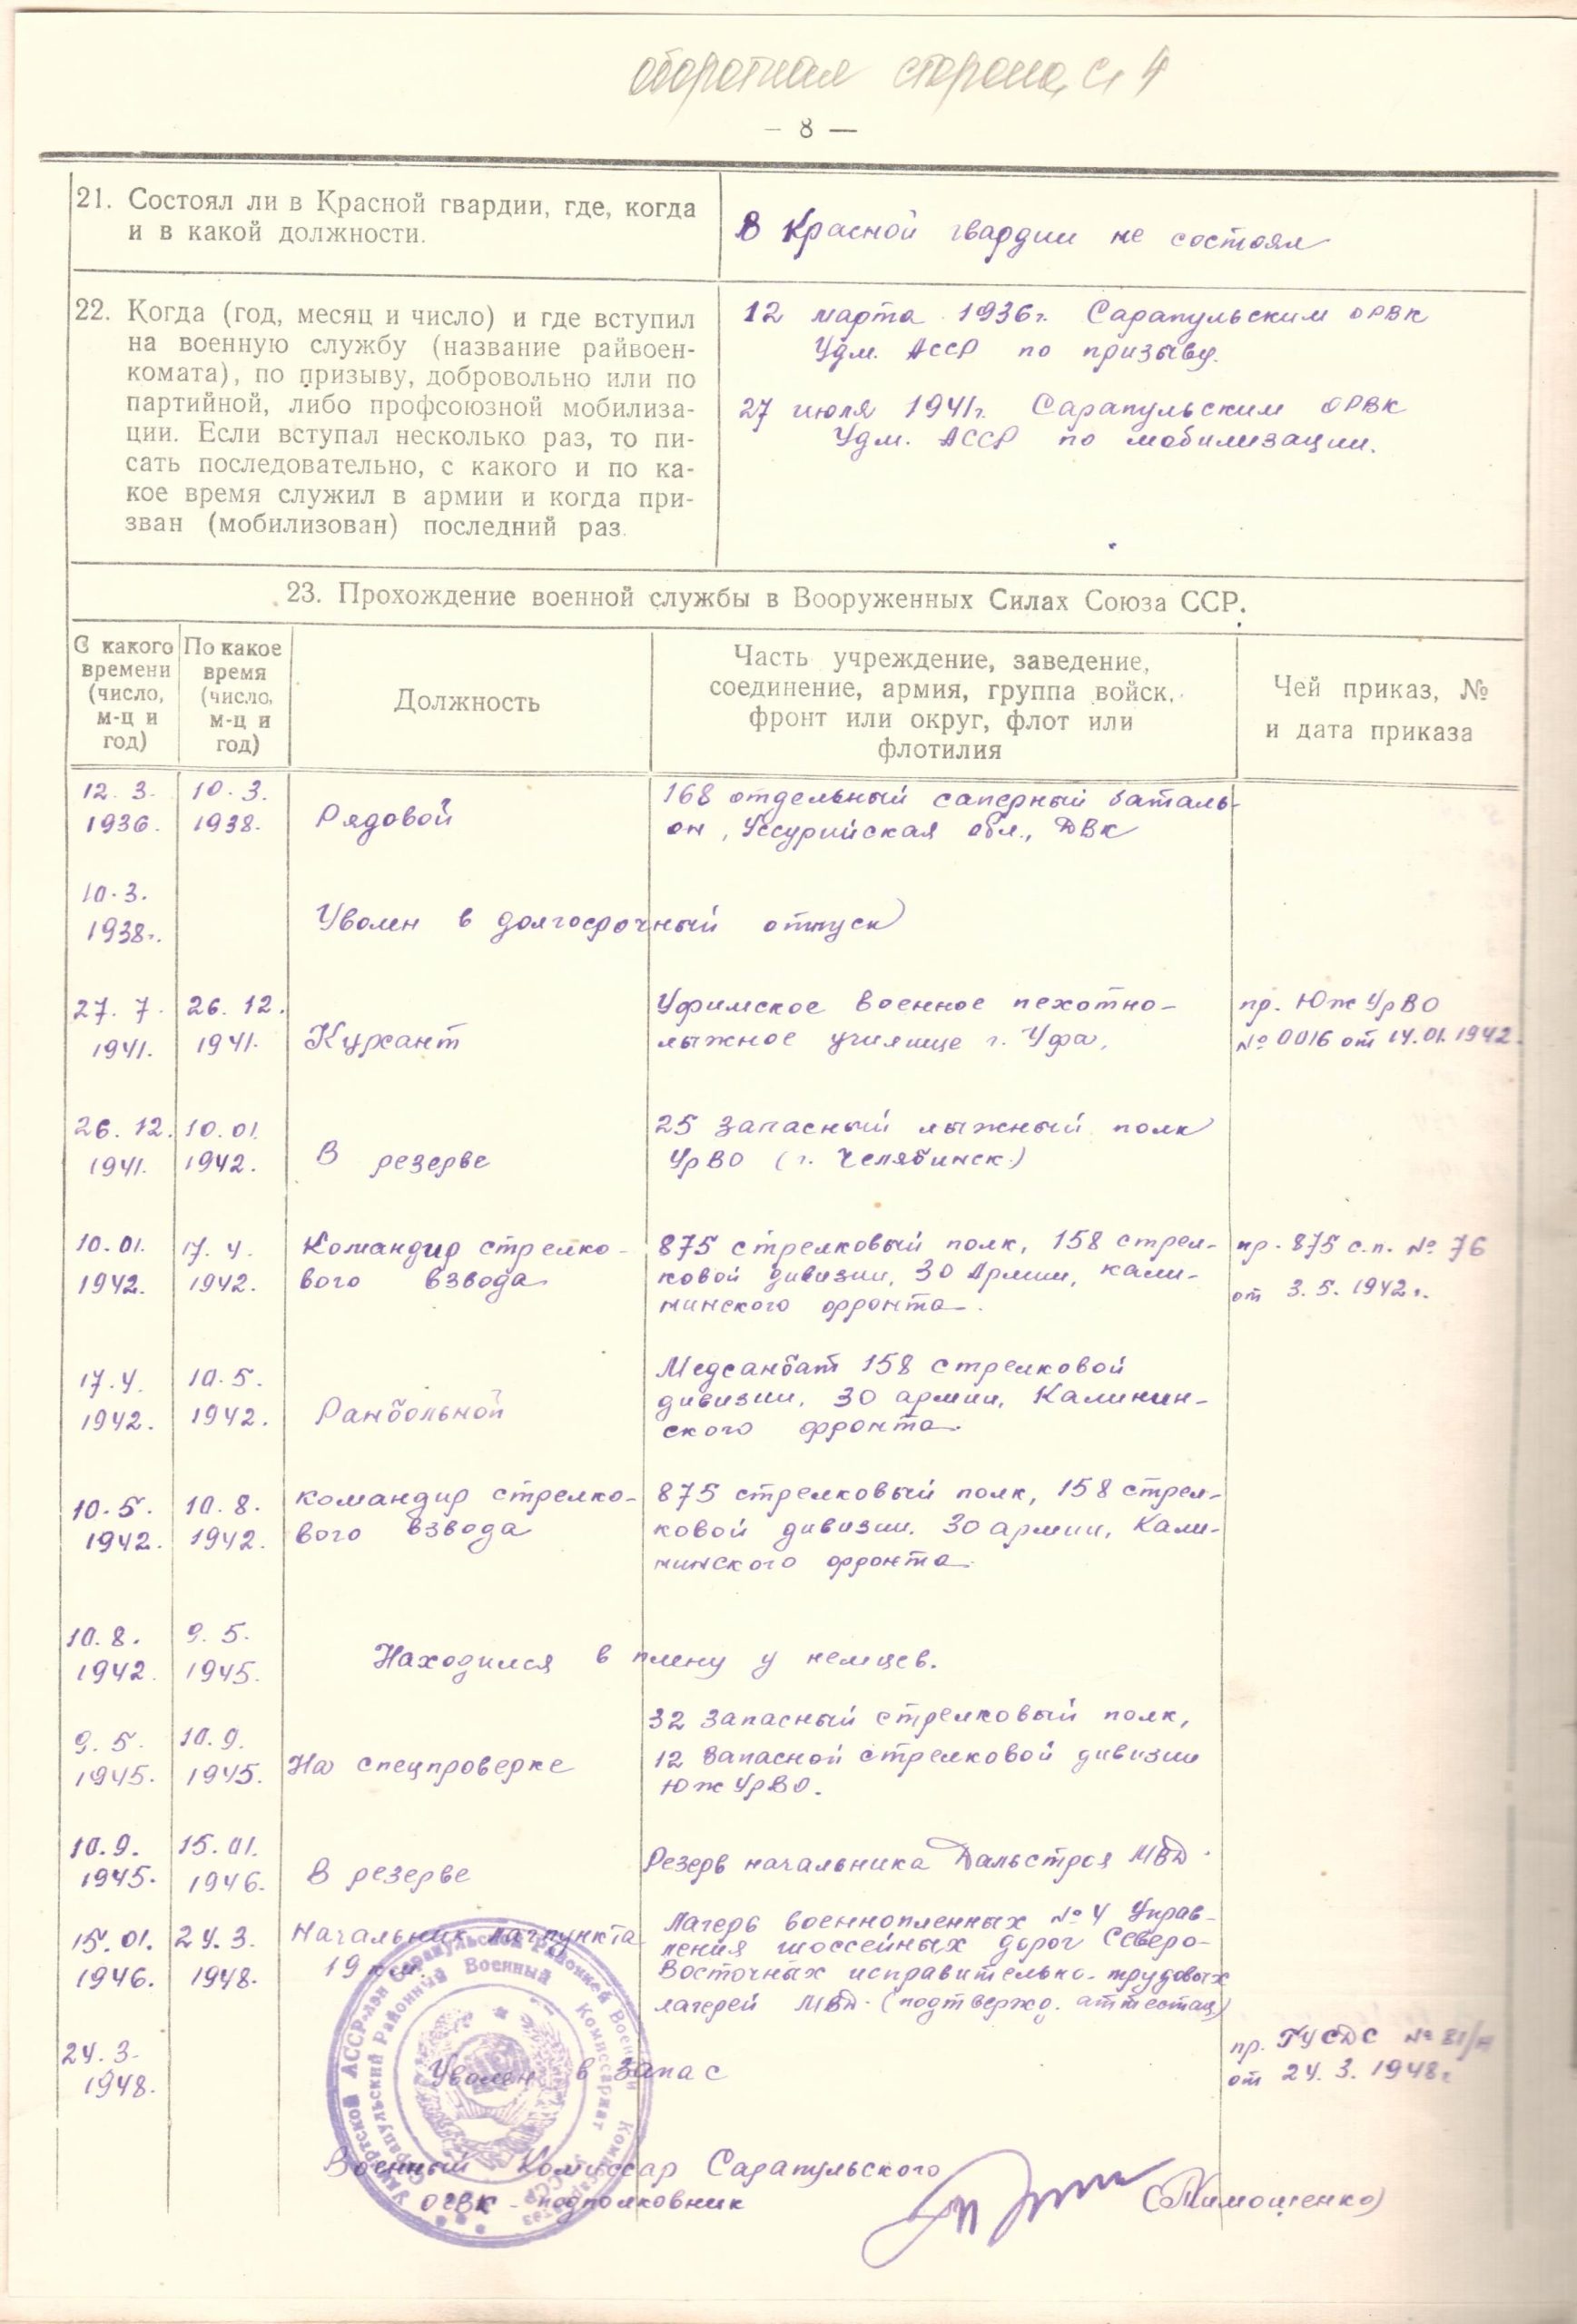 оборотная сторона, с. 4
— 8 —
21. Состоял ли в Красной гвардии, где, когда
и в какой должности.
В Красной гвардии не состоял
22. Когда (год, месяц и число) и где вступил
на военную службу (название райвоен-
комата), по призыву, добровольно или по
партийной, либо профсоюзной мобилиза-
ции. Если вступал несколько раз, то пи-
сать последовательно, с какого и по ка-
кое время служил в армии и когда при-
зван (мобилизован) последний раз.
12 марта 1936г. Сарапульским ОРВК
Удм. АССР по призыву.
27 июля 1941г. Сарапульским ОРВК
Удм. АССР по мобилизации.
23. Прохождение военной службы в Вооруженных Силах Союза ССР.
С какого
времени
(число,
м-ц и
год)
По какое
время
(число,
м-ц и
год)
Должность
Часть учреждение, заведение,
соединение, армия, группа войск,
фронт или округ, флот или
флотилия
Чей приказ, №
и дата приказа
12. 3.
1936.
10. 3.
1938.
Рядовой
168 отдельный саперный баталь-
он, Уссурийская обл., ДВК
10. 3.
1938г.
Уволен в долгосрочный отпуск
27. 7.
1941.
26. 12.
1941.
Курсант
Уфимское военное пехотно-
лыжное училище г. Уфа,
пр. ЮжУрВО
№ 0016 от 14.01.1942.
26. 12.
1941.
10. 01.
1942.
В резерве
25 запасный лыжный полк
УрВО (г. Челябинск)
10. 01.
1942.
17. 4.
1942.
Командир стрелко-
вого взвода
875 стрелковый полк, 158 стрел-
ковой дивизии, 30 Армии, Кали-
нинского фронта.
пр. 875 с.п. № 76
от 3. 5. 1942г.
17. 4.
1942.
10. 5.
1942.
Ранбольной
Медсанбат 158 стрелковой
дивизии, 30 армии, Калинин-
ского фронта.
10. 5.
1942.
10. 8.
1942.
командир стрелко-
вого взвода
875 стрелковый полк, 158 стрел-
ковой дивизии. 30 армии, Кали-
нинского фронта.
10. 8.
1942.
9. 5.
1945.
Находился в плену у немцев.
9. 5.
1945.
10. 9.
1945.
На спецпроверке
32 запасный стрелковый полк,
12 запасной стрелковой дивизии
ЮжУрВО.
10. 9.
1945.
15. 01.
1946.
В резерве
Резерв начальника Дальстроя МВД.
15. 01.
1946.
24. 3.
1948.
Начальник лагпункта
19 км.
Лагерь военнопленных № 4 Управ-
ления шоссейных дорог Северо-
Восточных исправительно-трудовых
лагерей МВД. (подтвержд. аттестац)
24. 3.
1948.
Уволен в запас
пр. ГУСДС № 81/н
от 24. 3. 1948г
Военный Комиссар Сарапульского
ОГВК - подполковник
(Тимошенко)
Сарапульский Районный Военный Комиссариат